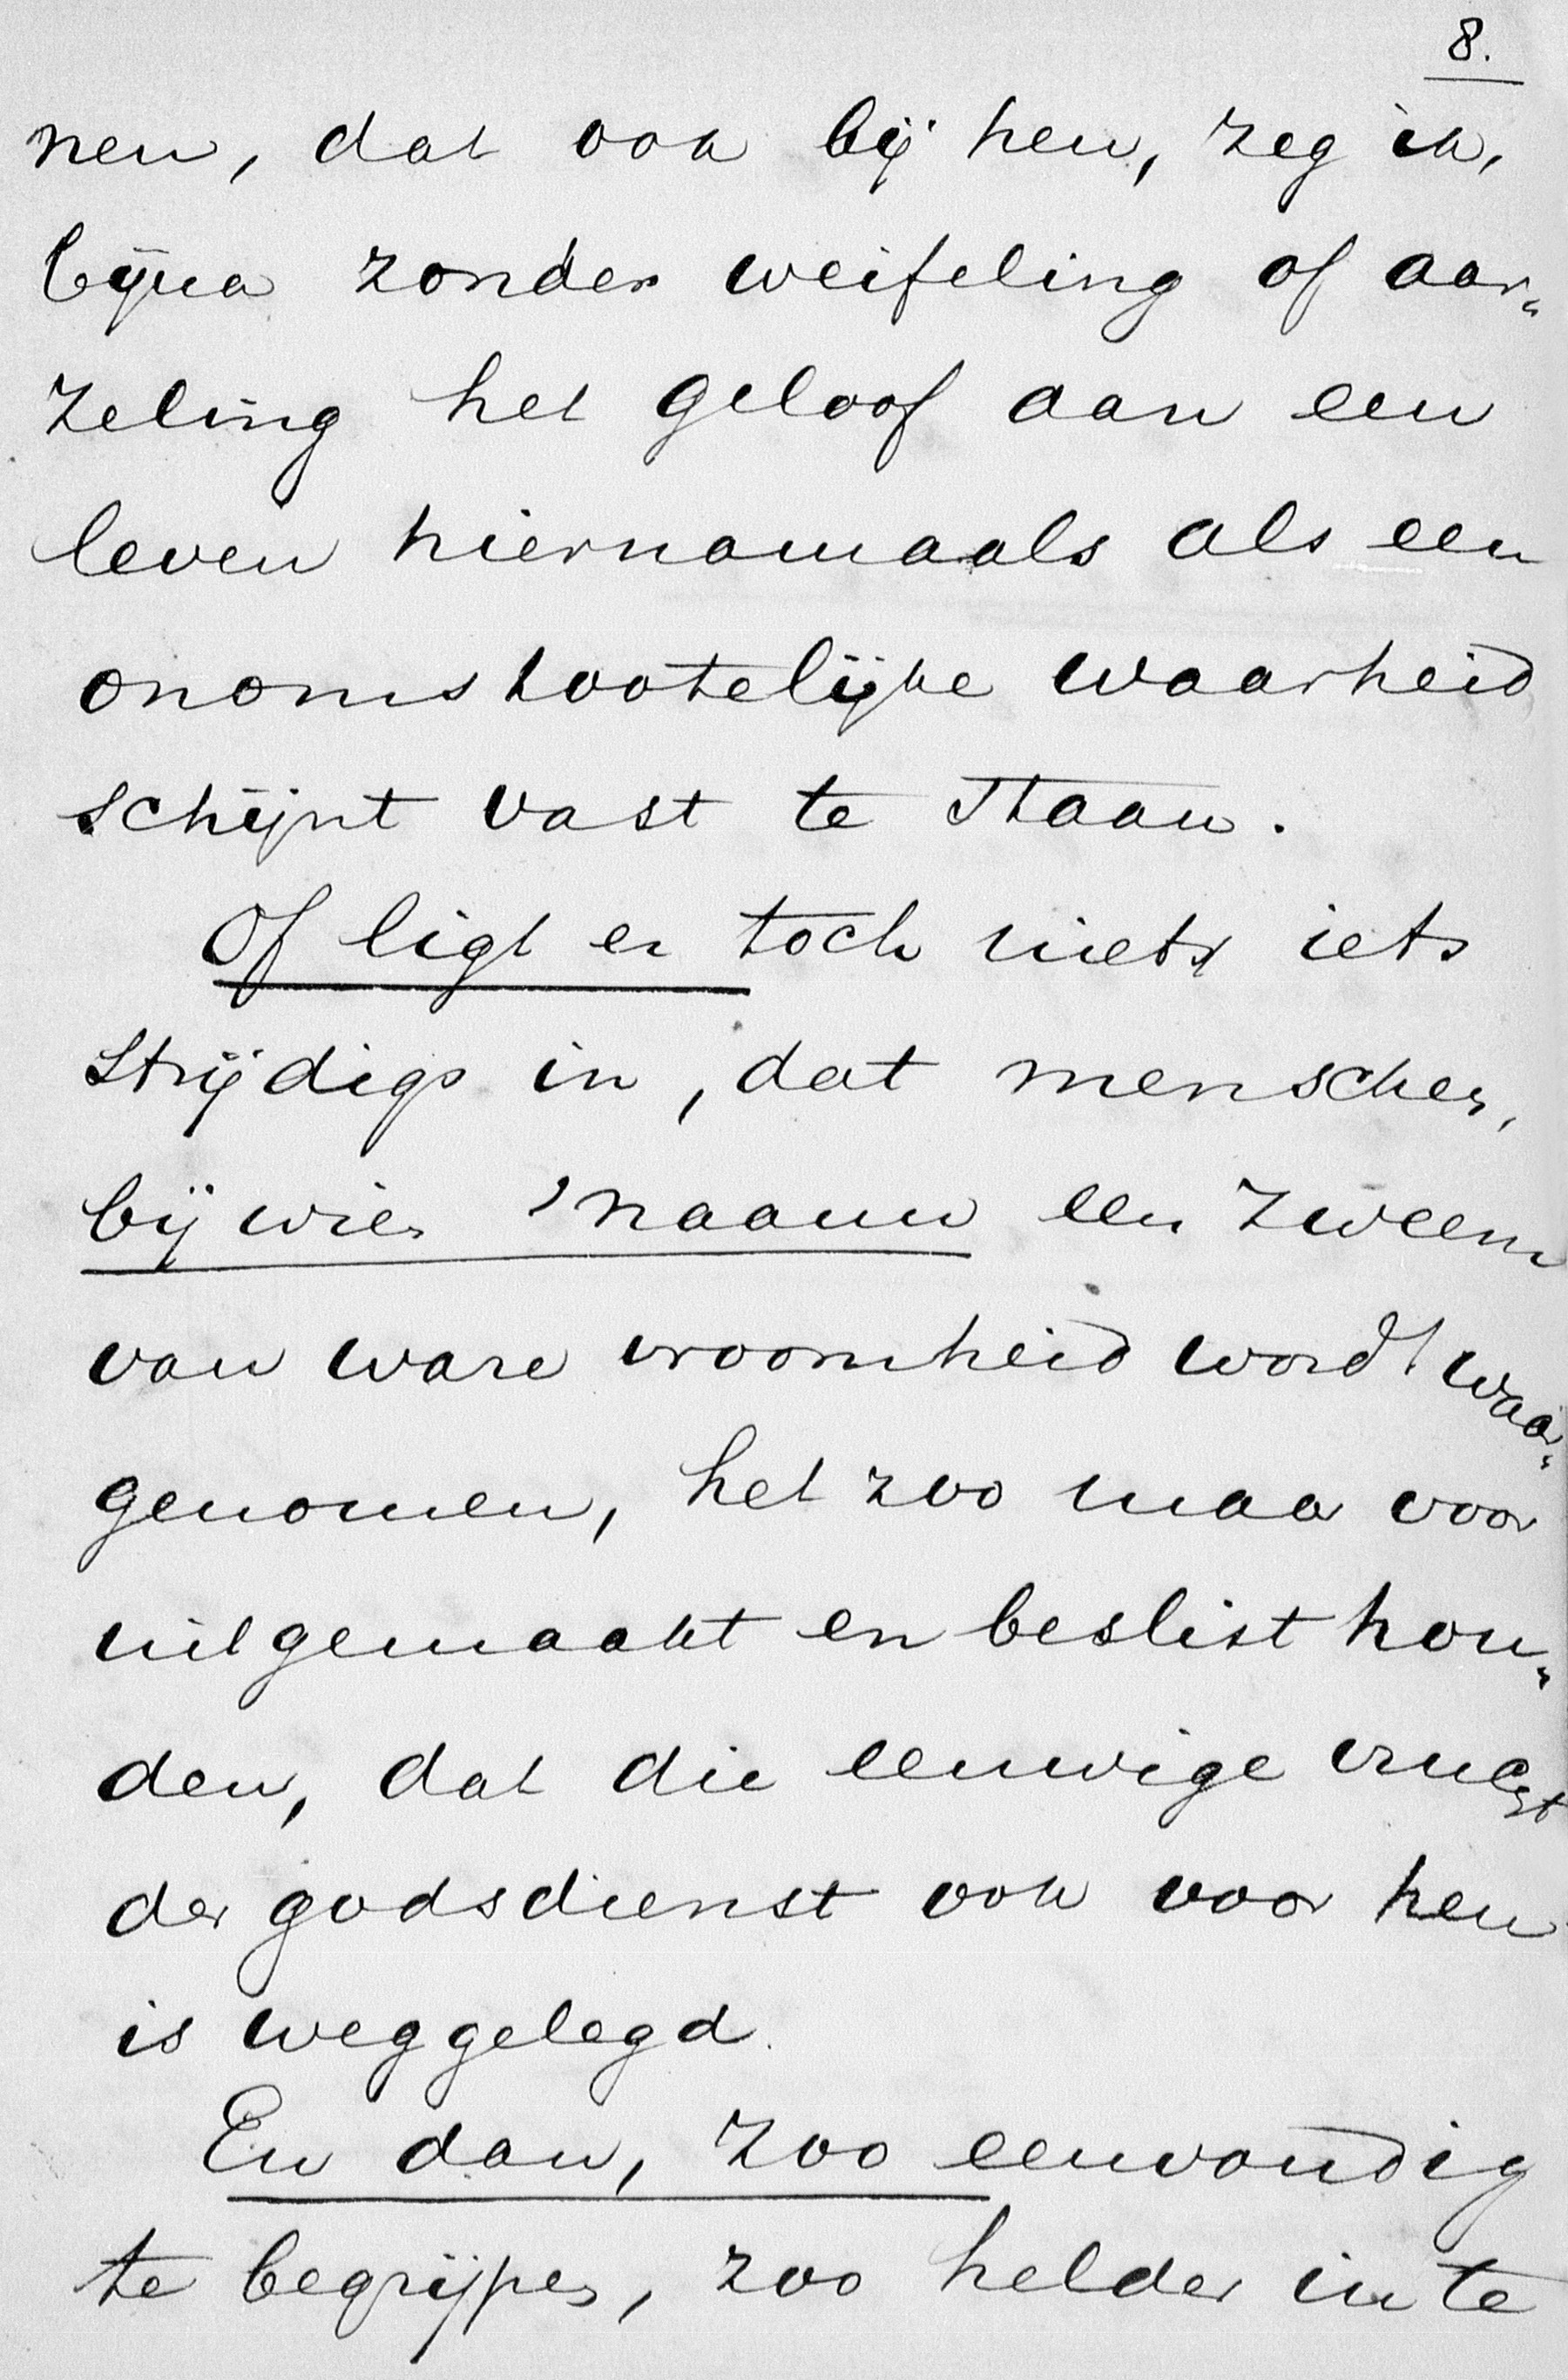 8.
nen, dat ook bij hen, zeg ik,
bijna zonder weifeling of aar„
zeling het geloof aan een
leven hiernamaals als een
onomstootelijke waarheid
schijnt vast te staan.
Of ligt er toch niets iets
strijdigs in, dat menschen,
bij wier 'naauw een zweem
van ware vroomheid wordt waar„
genomen, het zoo maar voor
uitgemaakt en beslist hou„
den, dat die eeuwige vrucht
der godsdienst ook voor hen
is weggelegd.
En dan, zoo eenvoudig
te begrijpen, zoo helder in te